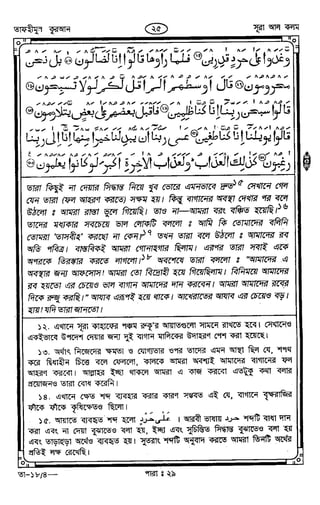 তাফহীমুল কুরআন
২৫
সূরা আল কলম
وَغَدَوْا عَلَىٰ حَرْدٍ قٰدِرِيْنَ ۝ فَلَمَّا رَاَوْهَا قَالُوْٓا اِنَّا لَضَآلُّوْنَ ۝ بَلْ نَحْنُ
مَحْرُوْمُوْنَ ۝ قَالَ اَوْسَطُهُمْ اَلَمْ اَقُلْ لَّكُمْ لَوْلَا تُسَبِّحُوْنَ ۝
قَالُوْا سُبْحٰنَ رَبِّنَآ اِنَّا كُنَّا ظٰلِمِيْنَ ۝ فَاَقْبَلَ بَعْضُهُمْ عَلٰى بَعْضٍ يَّتَلَاوَمُوْنَ ۝
قَالُوْا يٰوَيْلَنَآ اِنَّا كُنَّا طٰغِيْنَ ۝ عَسٰى رَبُّنَآ اَنْ يُّبْدِلَنَا خَيْرًا مِّنْهَآ اِنَّآ اِلٰى رَبِّنَا
رٰغِبُوْنَ ۝ كَذٰلِكَ الْعَذَابُ وَلَعَذَابُ الْاٰخِرَةِ اَكْبَرُ لَوْ كَانُوْا يَعْلَمُوْنَ ۝
তারা কিছুই না দেয়ার সিদ্ধান্ত নিয়ে খুব ভোরে এমনভাবে দ্রুত১৫ সেখানে গেল
যেন তারা (ফল আহরণ করতে) সক্ষম হয়। কিন্তু বাগানের অবস্থা দেখার পর বলে
উঠলো ঃ আমরা রাস্তা ভুলে গিয়েছি। তাও না—আমরা বরং বঞ্চিত হয়েছি।১৬
তাদের মধ্যকার সবচেয়ে ভাল লোকটি বললো ঃ আমি কি তোমাদের বলিনি
তোমরা 'তাসবীহ' করছো না কেন?১৭ তখন তারা বলে উঠলো ঃ আমাদের রব
অতি পবিত্র। বাস্তবিকই আমরা গোনাহগার ছিলাম। এরপর তারা সবাই একে
অপরকে তিরস্কার করতে লাগলো।১৮ অবশেষে তারা বললো ঃ "আমাদের এ
অবস্থার জন্য আফসোস! আমরা তো বিদ্রোহী হয়ে গিয়েছিলাম। বিনিময়ে আমাদের
রব হয়তো এর চেয়েও ভাল বাগান আমাদের দান করবেন। আমরা আমাদের রবের
দিকে রুজু করছি।" আযাব এরূপই হয়ে থাকে। আখেরাতের আযাব এর চেয়েও বড়।
হায়! যদি তারা জানতো।
১২. এখানে সূরা কাহাফের পঞ্চম রুকূ'র আয়াতগুলো সামনে রাখতে হবে। সেখানেও
একইভাবে উপদেশ দেয়ার জন্য দুই বাগান মালিকের উদাহরণ পেশ করা হয়েছে।
১৩. অর্থাৎ নিজেদের ক্ষমতা ও যোগ্যতার ওপর তাদের এমন আস্থা ছিল যে, শপথ
করে দ্বিধাহীন চিত্তে বলে ফেললো, কালকে আমরা অবশ্যই আমাদের বাগানের ফল
আহরণ করবো। আল্লাহর ইচ্ছা থাকলে আমরা এ কাজ করবো এতটুকু কথা বলার
প্রয়োজনও তারা বোধ করেনি।
১৪. এখানে ক্ষেত শব্দ ব্যবহার করার কারণ সম্ভবত এই যে, বাগানে বৃক্ষরাজির
ফাঁকে ফাঁকে কৃষিক্ষেতও ছিলো।
১৫. আয়াতে ব্যবহৃত শব্দ হলো علی حرد। আরবী ভাষায় حرد শব্দটি বাধা দান
করা এবং না দেয়া বুঝাতেও বলা হয়, ইচ্ছা এবং সুচিন্তিত সিদ্ধান্ত বুঝাতেও বলা হয়
এবং তাড়াহুড়া অর্থেও ব্যবহৃত হয়। সুতরাং শব্দটি অনুবাদ করতে আমরা তিনটি অর্থের
প্রতিই লক্ষ রেখেছি।
তা-১৮/৪—
পারা ঃ ২৯